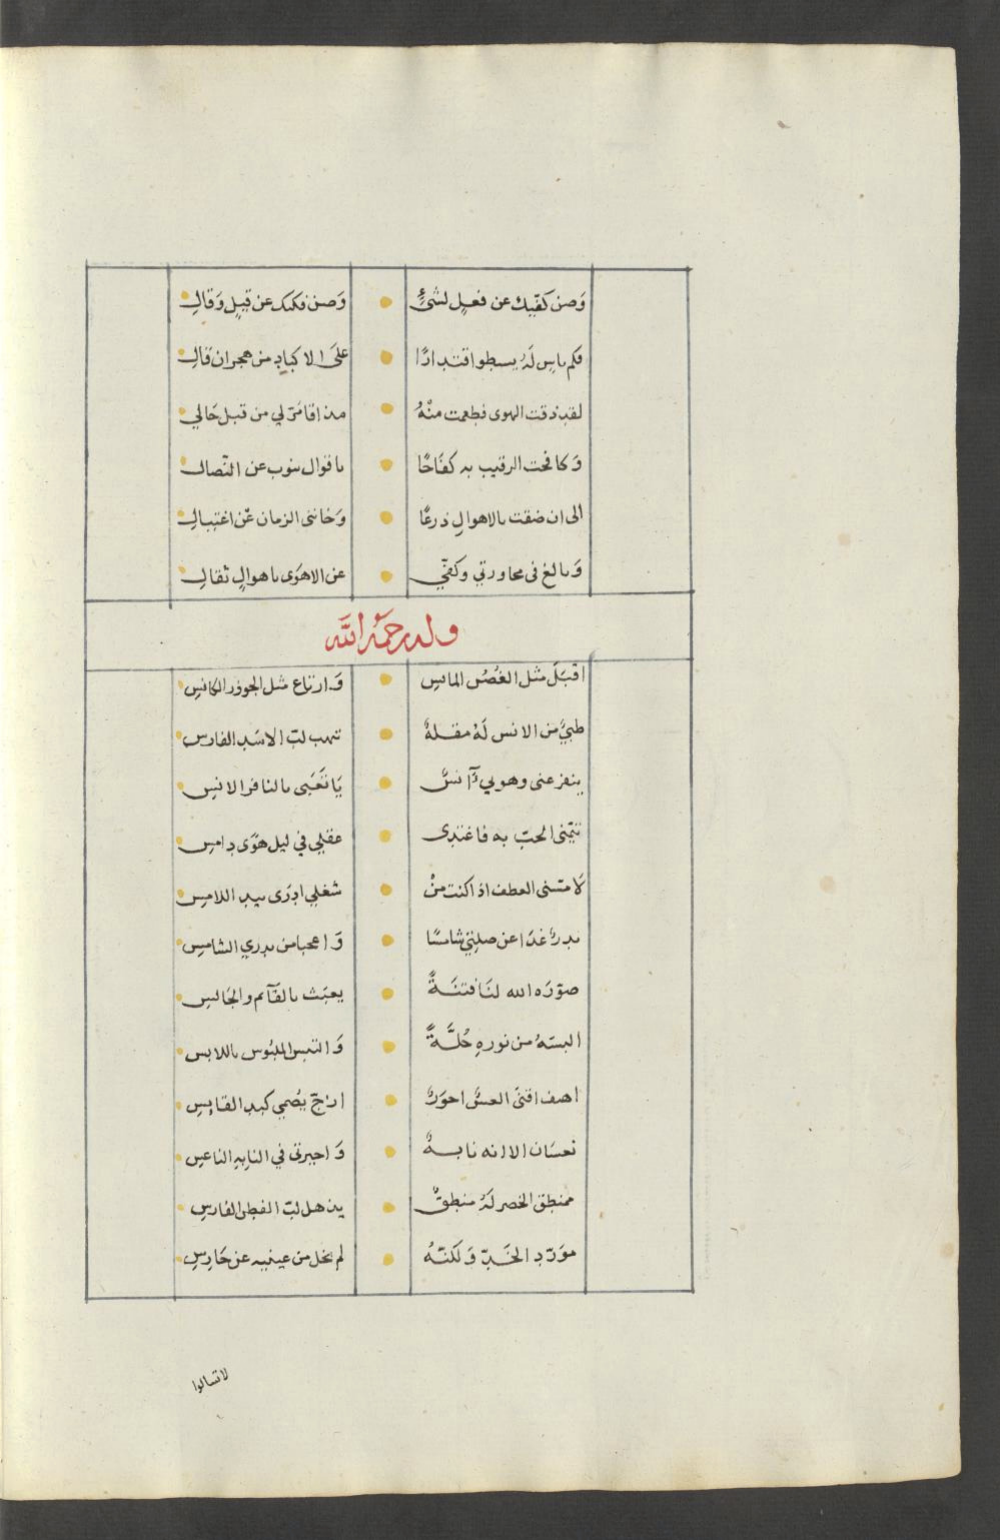 وَصن كفّيك عن فعلٍ لشيءٍ وَصن فكيك عن قيلٍ وَقالِ
فكم باسٍ لَهُ يسطو اقتدارًا علَى الاكبادِ من هجرانِ قالِ
لقد ذقت الهوى فطعمت منْهُ من اقاسَى لي من قبل حَالي
وَكافحت الرقيب به كفَاحًا باقوال تنوب عن النّصال
الى ان ضقت بالاهوالِ ذرعًا وَخاننى الزمان عَن اغتيالِ
وَبالغ فى محاورتي وكفّي عن الاهوَى باهوالٍ ثقالِ
وله رحمَه الله
اقبَلَ مثل الغُصُن المائسِ وَارتاع مثل الجوذر الكانسِ
ظبيٌ من الانس لَهُ مقلةٌ تنهب لبّ الاسَد الفارسِ
ينفر عنى وهو لي آنسٌ يَا تَعَبى بالنافر الانسِ
تيّمنى الحبّ به فاغتدى عقلي في ليل هوًى دامسِ
لَا مسّنى العطف اذا كنت منْ شغلي ادرَى بيد اللامسِ
بدرٌ غدَا عن صلتي شامسًا وَاعجبا من بدري الشامسِ
صوّرَه الله لنَا فتنَةً يعبَث بالقَآئم والجَالسِ
البسَهُ من نورهِ حُلَّةً وَالتبس الملبُوس باللابس
اهيف اقنَى احورٌ ازجّ يصُمي كبد القابسِ
نعسَان الا انه نابهٌ وَاحيرتى في النابِهِ الناعسِ
ممنطق الخصر لَهُ منطقٌ يذهل لبّ الفطن الفارسِ
مورّد الخَدّ وَلكنّهُ لم يخل من عينيه عن حَارسِ
لا تسالوا